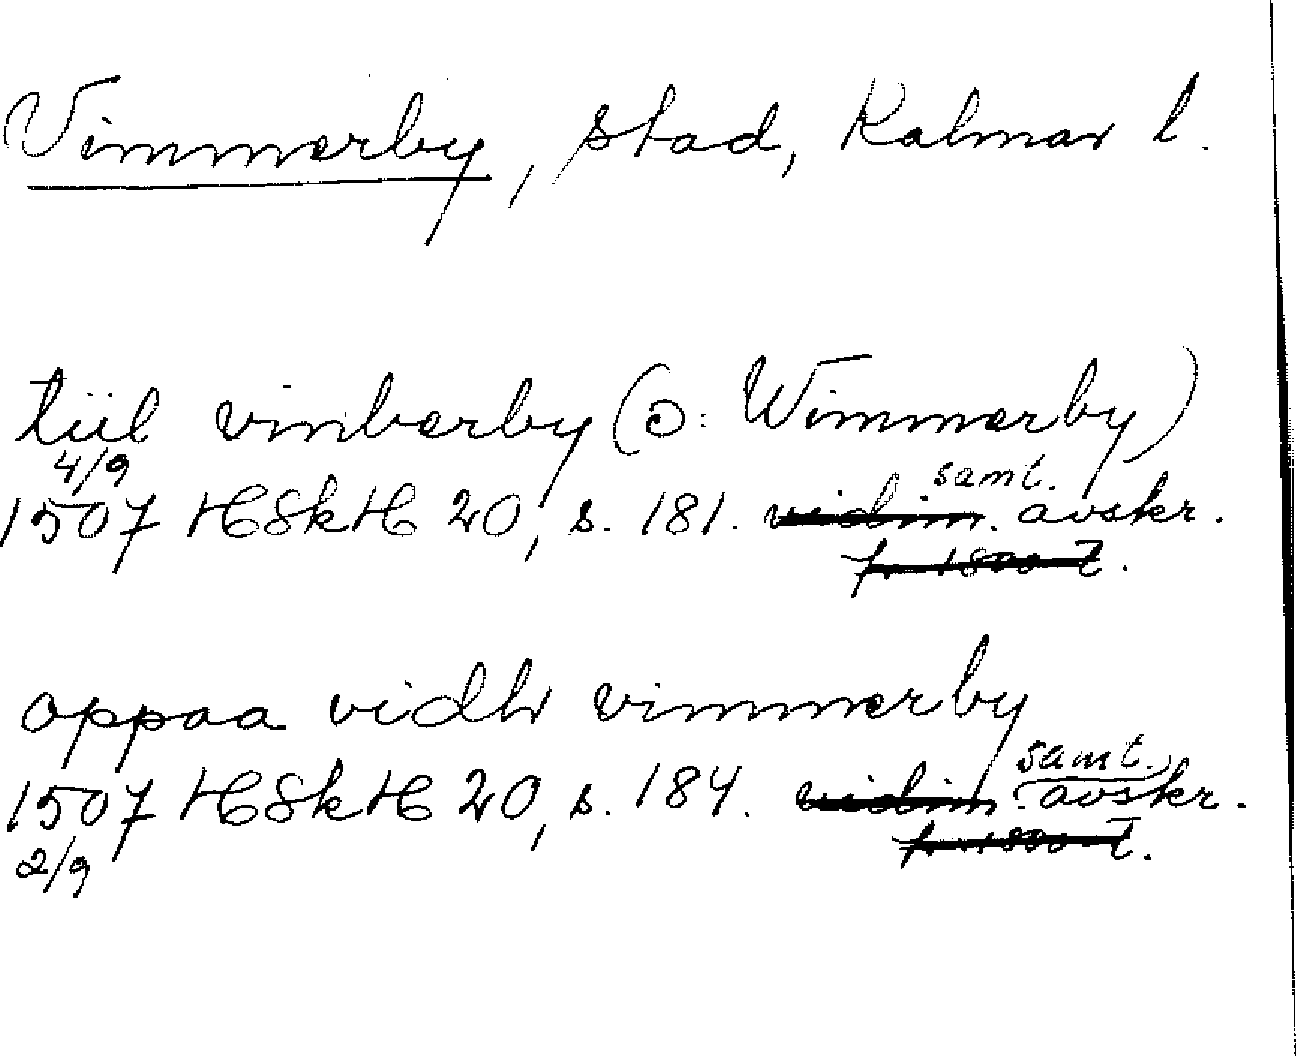 Vimmerby, stad, Kalmar l.
tiil vinberby (ɔ: Wimmerby)
4/9 samt.
1507 HSkH 20, s. 181. vidim. avskr.
fr 1800 t.
oppaa vidh vimmerby
samt.
1507 HSkH 20, s. 184. vidim avskr.
2/9 fr 1800 t.